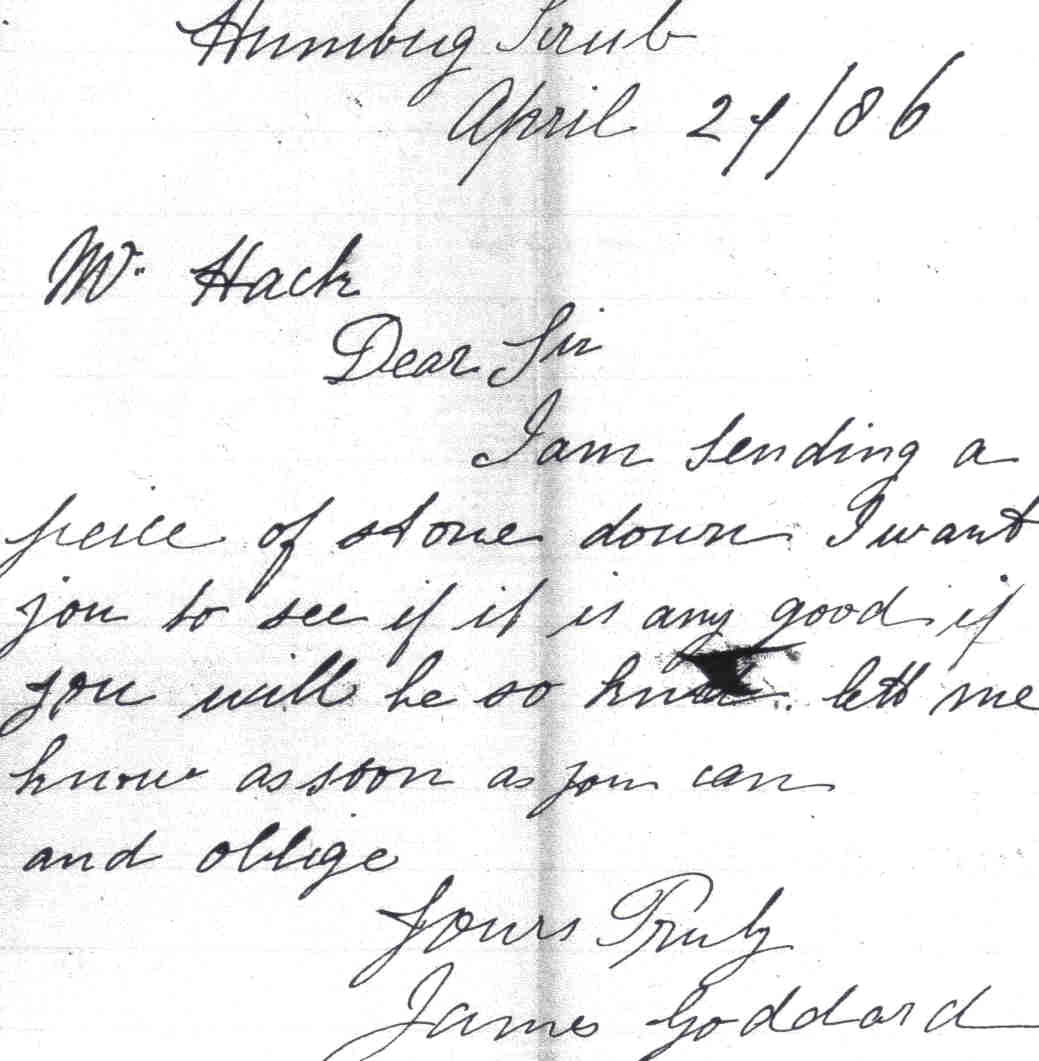 Humbug Scrub
April 24/86
Mr. Hack
Dear Sir
I am sending a
peice of stone down I want
you to see if it is any good if
you will be so lett me
know as soon as you can
and oblige
Yours Truly
James Goddard